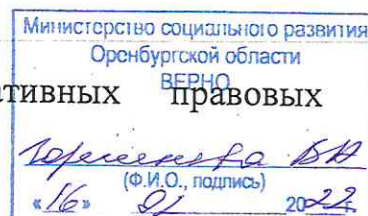 Министерство социального развития
Оренбургской области
ВЕРНО
ативных правовых
(Ф.И.О., подпись)
«16» 2022